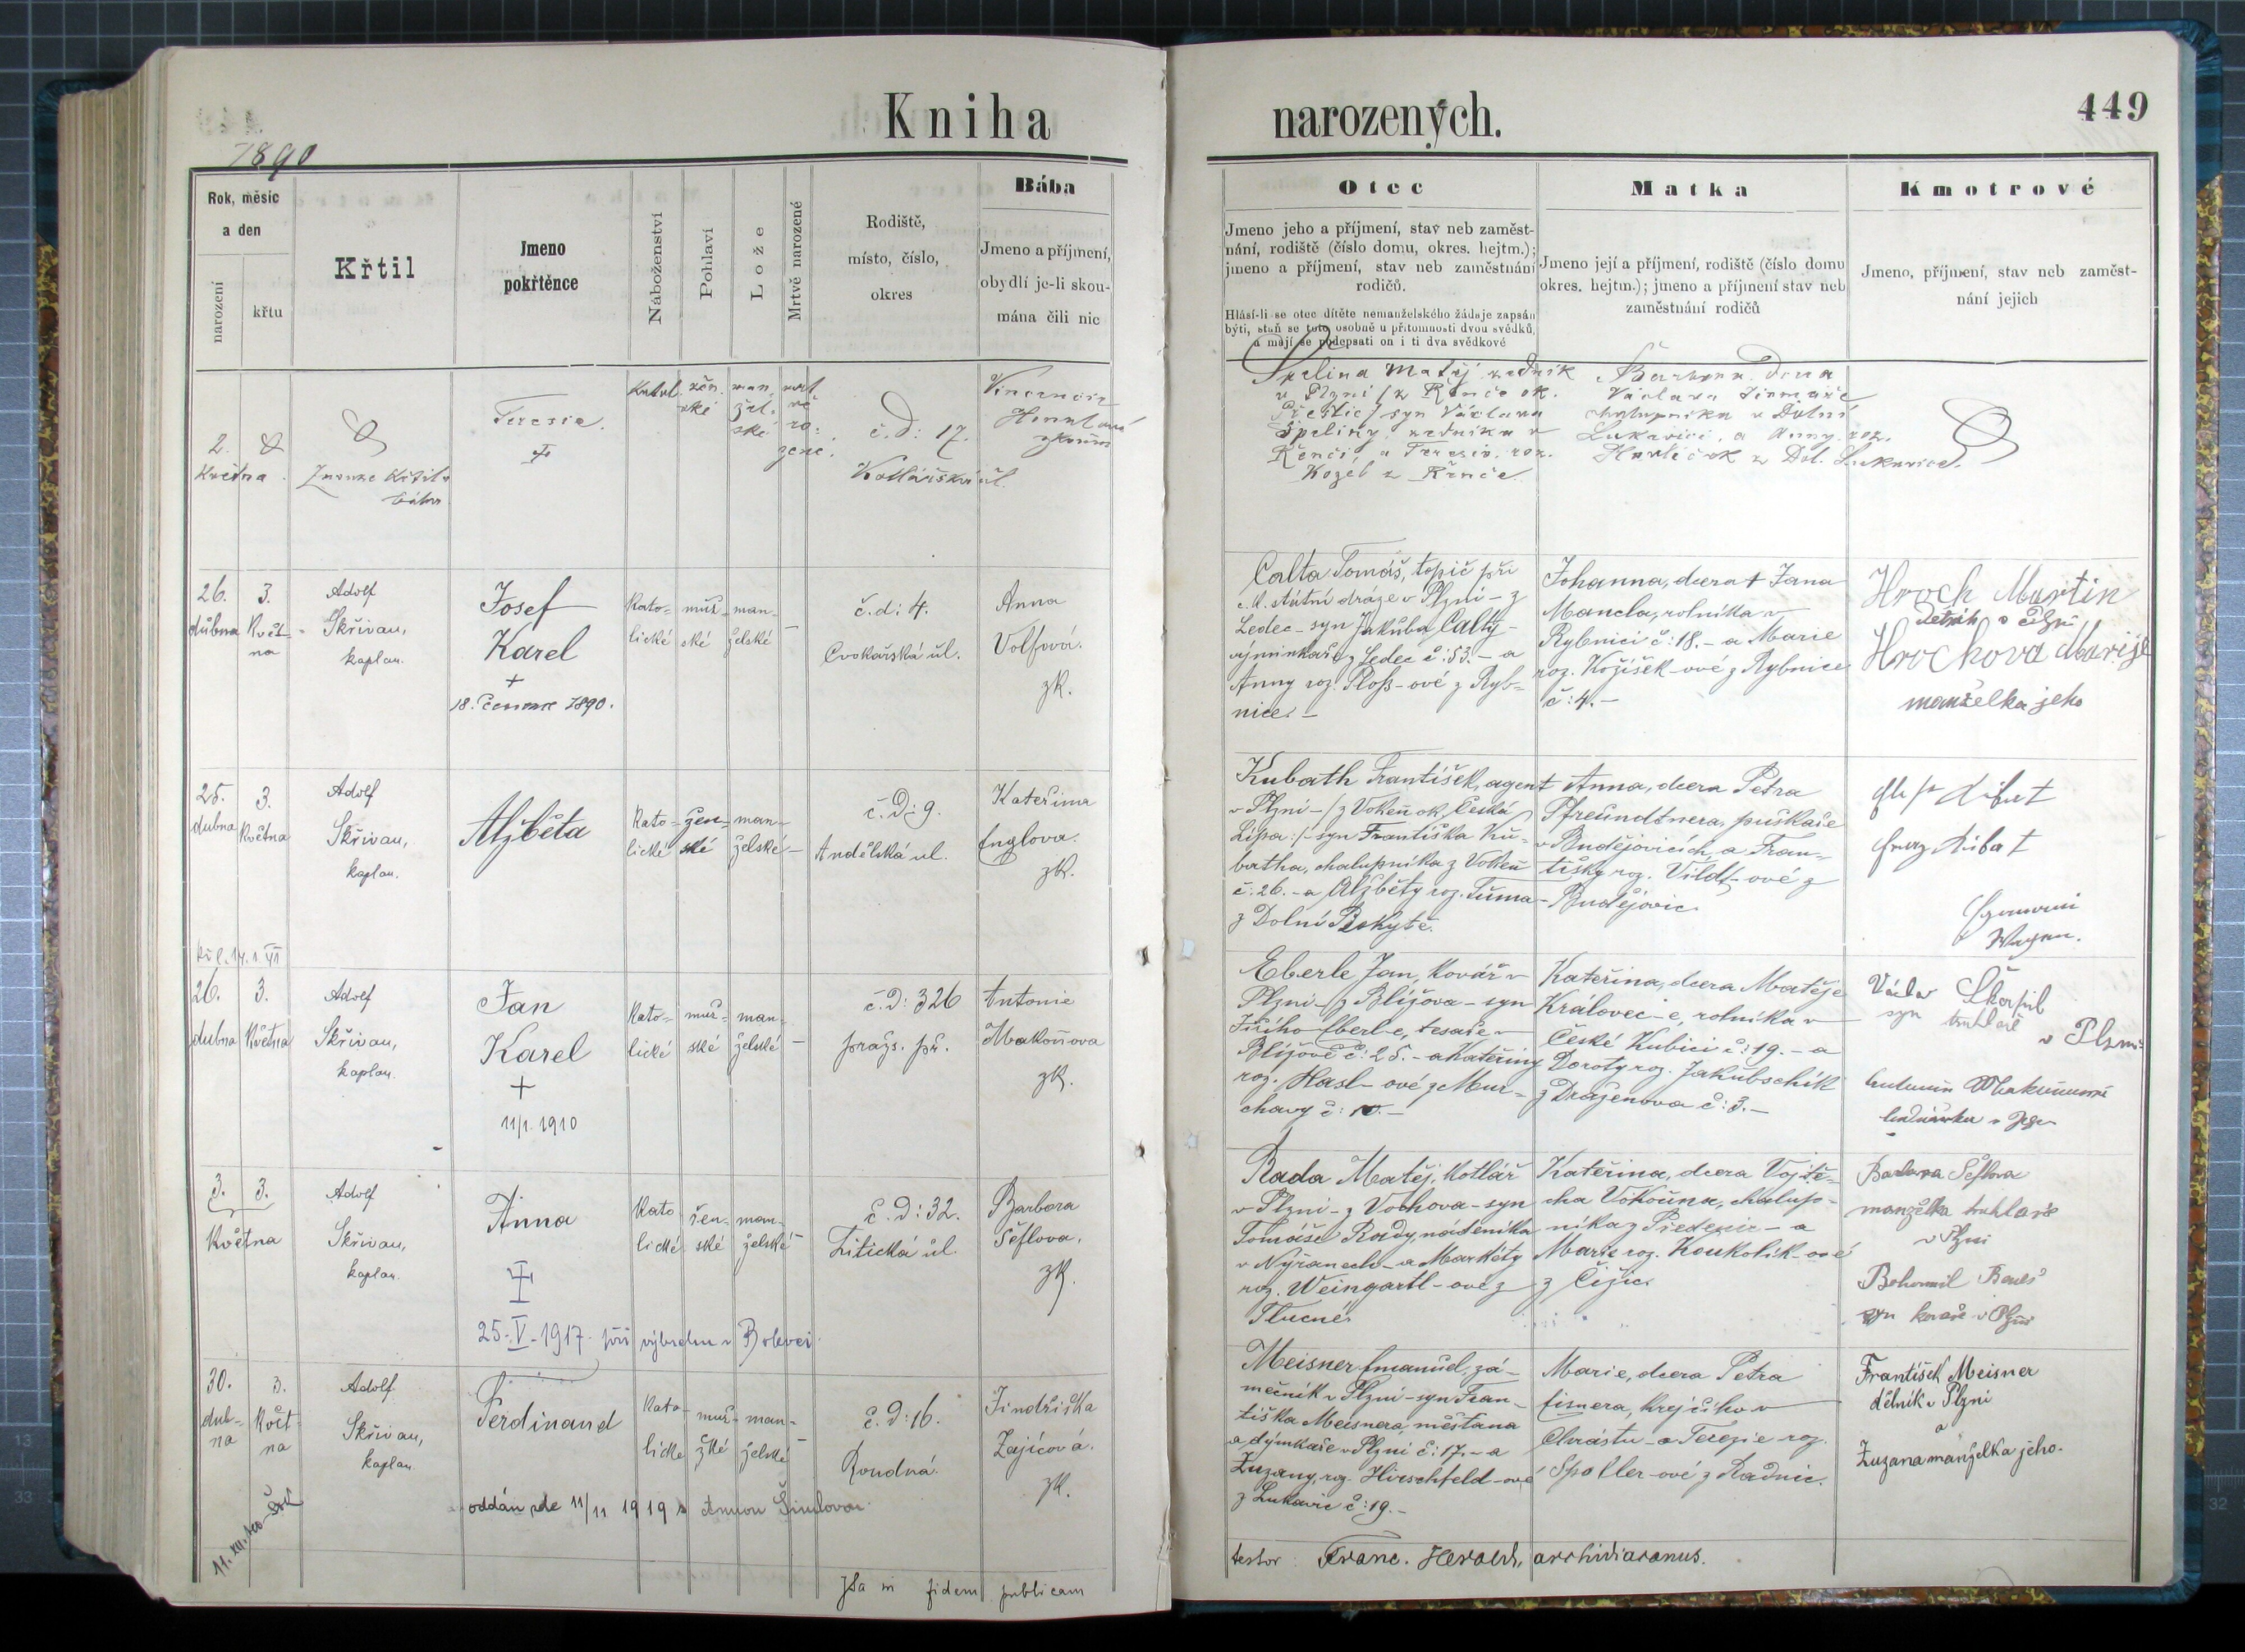 Kniha narozených.
449
1890
Rok, měsíc
a den
narození
křtu
Křtil
Jmeno
pokřtěnce
Náboženství
Pohlaví
Lože
Mrtvě narozené
Rodiště,
místo, číslo,
okres
Bába
Jmeno a příjmení,
obydlí je-li skou-
mána čili nic
Otec
Jmeno jeho a příjmení, stav neb zaměst-
nání, rodiště (číslo domu, okres. hejtm.);
jmeno a příjmení, stav neb zaměstnání
rodičů.
Hlásí-li se otec dítěte nemanželského žádaje zapsán
býti, staň se toto osobně u přítomnosti dvou svědků,
a mají se podepsati on i ti dva svědkové
Matka
Jmeno její a příjmení, rodiště (číslo domu
okres. hejtm.); jmeno a příjmení stav neb
zaměstnání rodičů
Kmotrové
Jmeno, příjmení, stav neb zaměst-
nání jejich
2.
Května
Znouze křtila
bába
Teresie.
Katol.
žen
ské
man
žel.
ské
mrt
vě
ro
zené.
č. d: 17.
Kotlářská ul.
Vincencie
zkoum
Špelina Matěj zedník
v Plzni (z Řenče ok.
Přeštic) syn Václava
Špeliny, zedníka v
Řenči, a Teresie roz.
Kozeb z Řenče
Barbora dcera
Václava
chalupníka v Dolní
Lukavici, a Anny roz.
Havlíček z Dol. Lukavice.
26.
dubna
3.
Květ-
na
Adolf
Skřivan,
kaplan.
Josef
Karel
+
18. července 1890.
Kato-
lické
muž-
ské
man-
želské
č. d: 4.
Cvokařská ul.
Anna
Volfová.
zk.
Calta Tomáš, topič při
c. k. státní dráze v Plzni - z
Ledec - syn Jakuba Calty -
výminkáře z Ledec č: 53. - a
Anny roz. Ploß-ové z Ryb-
nice. -
Johanna, dcera + Jana
Mancla, rolníka v
Rybnici č: 18. - a Marie
roz. Kožíšek-ové z Rybnice
č: 4. -
Hroch Martin
Hrochova Marije
manželka jeho
25.
dubna
3.
Května
Adolf
Skřivan,
kaplan.
Alžběta
Kato-
lické
žen-
ské
man-
želské
č. D: 9.
Andělská ul.
Kateřina
Englova.
zk.
Kubath František, agent
v Plzni - /: z Vokeň ok. Česká
Lípa :/ - syn Františka Ku-
batha, chalupníka z Vokeň
č. 26. - a Alžběty roz. Tůma
z Dolní Rokytě.
Anna, dcera Petra
Pfreundtnera, puškaře
v Budějovicích, a Fran-
tišky roz. Vildt-ové z
Budějovic.
26.
dubna
3.
Května
Adolf
Skřivan,
kaplan.
Jan
Karel
+
11/1. 1910
Kato-
lické
muž-
ské
man-
želské
č. D: 326
praž. př.
Antonie
Makoňova
zk.
Eberle Jan, kovář v
Plzni - z Blížova - syn
Jiřího Eberl-e, tesaře v
Blížově č: 25. - a Kateřiny
roz. Hasl-ové z Mur-
chavy č: 10. -
Kateřina, dcera Matěje
Královec-e, rolníka v
České Kubici č: 19. - a
Doroty roz. Jakubschik
z Draženova č: 3. -
Václav Škorpil
syn truhláře
v Plzni
3.
3.
Května
Adolf
Skřivan,
kaplan.
Anna
25. - V - 1917. při výbuchu v Bolevci.
Kato
lické
žen-
ské
man-
želské
č. D: 32.
Litická ul.
Barbora
Šeflova.
zk.
Rada Matěj, kotlář
v Plzni - z Vochova - syn
Tomáše Rady, nádeníka
v Nýřanech - a Markéty
roz. Weingartl-ové z
Tlucné.
Kateřina, dcera Vojtě-
cha Vokouna, chalup-
níka z Předenic - a
Marie roz. Koukolík-ové
z Čižic.
Barbora Šeflova
manželka truhláře
v Plzni
Bohumil Beneš
syn kováře v Plzni
30.
dub-
na
3.
Květ-
na
Adolf
Skřivan,
kaplan.
Ferdinand
Kato-
lické
muž-
ské
man-
želské
č. D: 16.
Roudná.
Jindřiška
Zajícová.
zk.
oddán zde 11/11 1919 s Annou Šimlovou
Meisner Emanuel, zá-
mečník v Plzni - syn Fran-
tiška Meisnera, měšťana
a dýmkaře v Plzni č: 17. - a
Zuzany, roz. Hirschfeld-ové
z Lukavic č: 19. -
Marie, dcera Petra
Eisnera, krejčího v
Chrástu - a Terezie roz.
Spottler-ové z Radnic.
František Meisner
dělník v Plzni
a
Zuzana manželka jeho.
Ita in fidem publicam
testor: Franc. Herold, archidiaconus.